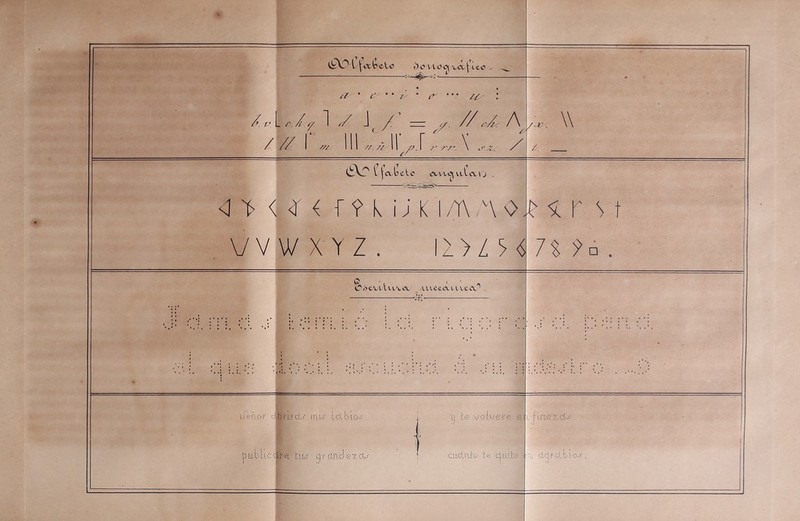 Alfabeto sonográfico.
a e i o u
b v c k q d f g ch j x
l ll m n ñ p r rr s z t
Alfabeto angular.
a b c d e f g h i j k l m n o p q r s t
u v w x y z. 1 2 3 4 5 6 7 8 9 0.
Escritura mecánica
Jamas temió la rigorosa pena
el que docil escucha á su maestro.
Señor abriras mis labios y te volvere en finezas
publicare tus grandezas cuanto te quite en agrabios.